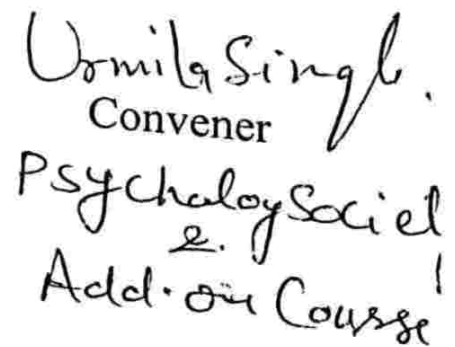 Urmila Singh.
Convener
Psychology Society
&
Add-on Course